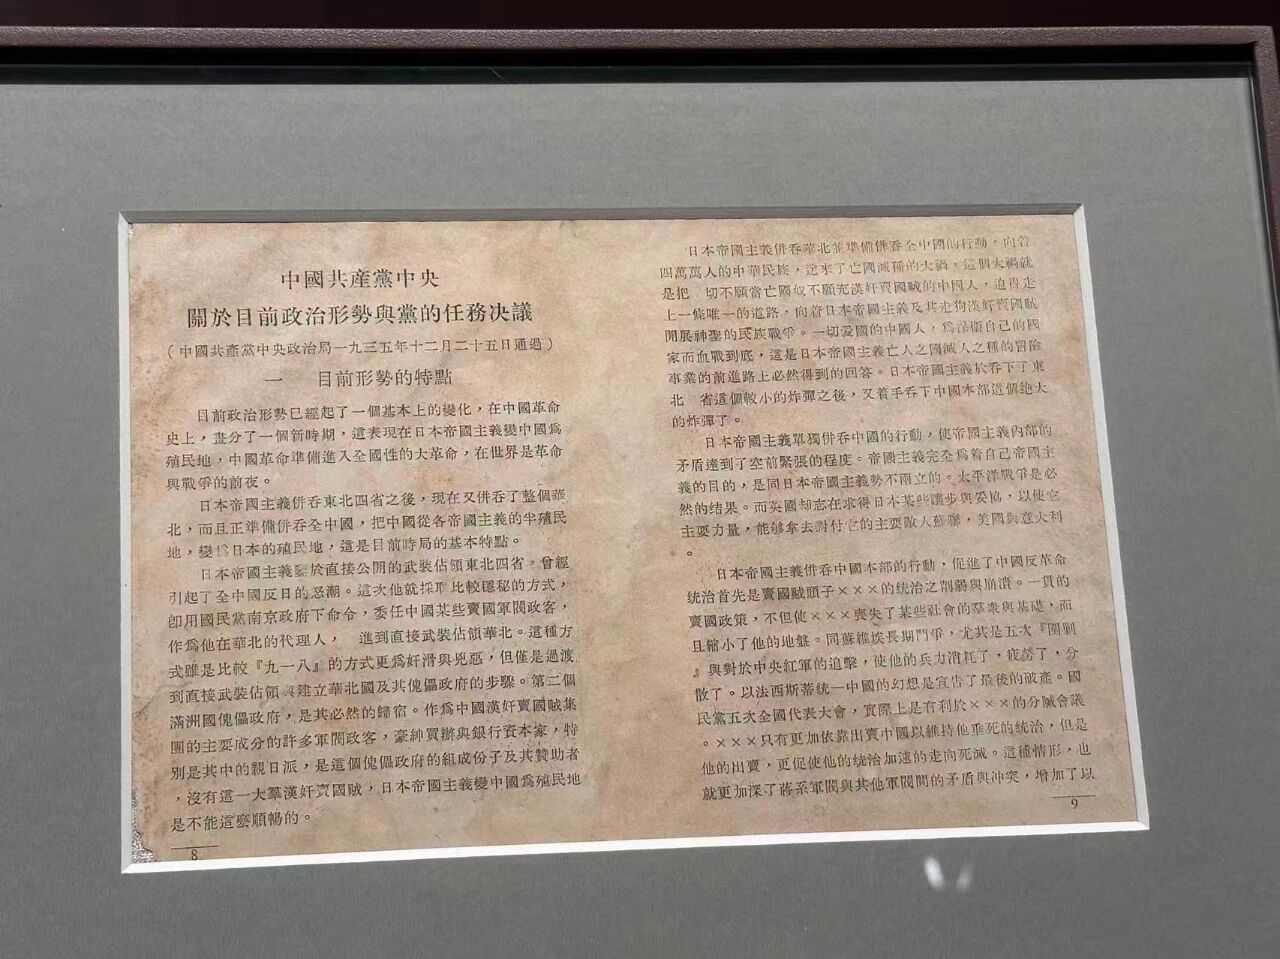 中國共產黨中央
關於目前政治形勢與黨的任務決議
（中國共產黨中央政治局一九三五年十二月二十五日通過）
一　目前形勢的特點
目前政治形勢已經起了一個基本上的變化，在中國革命
史上，畫分了一個新時期，這表現在日本帝國主義變中國爲
殖民地，中國革命準備進入全國性的大革命，在世界是革命
與戰爭的前夜。
日本帝國主義併吞東北四省之後，現在又併吞了整個華
北，而且正準備併吞全中國，把中國從各帝國主義的半殖民
地，變爲日本的殖民地，這是目前時局的基本特點。
日本帝國主義鑒於直接公開的武裝佔領東北四省，曾經
引起了全中國反日的怒潮。這次他就採取比較穩秘的方式，
卽用國民黨南京政府下命令，委任中國某些賣國軍閥政客，
作爲他在華北的代理人，　進到直接武裝佔領華北。這種方
式雖是比較『九一八』的方式更爲奸滑與兇惡，但僅是過渡
到直接武裝佔領與建立華北國及其傀儡政府的步驟。第二個
滿洲國傀儡政府，是其必然的歸宿。作爲中國漢奸賣國賊集
團的主要成分的許多軍閥政客，豪紳買辦與銀行資本家，特
別是其中的親日派，是這個傀儡政府的組成份子及其贊助者
，沒有這一大羣漢奸賣國賊，日本帝國主義變中國爲殖民地
是不能這麼順暢的。
8
日本帝國主義併吞華北並準備併吞全中國的行動，向着
四萬萬人的中華民族，送來了亡國滅種的大禍，這個大禍就
是把　切不願當亡國奴不願充漢奸賣國賊的中國人，迫得走
上一條唯一的道路，向着日本帝國主義及其走狗漢奸賣國賊
開展神聖的民族戰爭。一切愛國的中國人，爲保衛自己的國
家而血戰到底，這是日本帝國主義亡人之國滅人之種的冒險
事業的前進路上必然得到的回答。日本帝國主義於吞下了東
北　省這個較小的炸彈之後，又着手吞下中國本部這個絶大
的炸彈了。
日本帝國主義單獨併吞中國的行動，使帝國主義內部的
矛盾達到了空前緊張的程度。帝國主義完全爲着自己帝國主
義的目的，是同日本帝國主義勢不兩立的。太平洋戰爭是必
然的结果。而英國却志在求得日本某些讓步與妥協，以使它
主要力量，能够拿去對付它的主要敵人蘇聯，美國與意大利
。
日本帝國主義併吞中國本部的行動，促進了中國反革命
統治首先是賣國賊頭子×××的統治之削弱與崩潰。一貫的
賣國政策，不但使×××喪失了某些社會的羣衆與基礎，而
且縮小了他的地盤。同蘇維埃長期鬥爭，尤其是五次『圍剿
』與對於中央紅軍的追擊，使他的兵力消耗了，疲勞了，分
散了。以法西斯蒂統一中國的幻想是宣告了最後的破產。國
民黨五次全國代表大會，實際上是有利於×××的分贓會議
。×××只有更加依靠出賣中國以維持他垂死的統治，但是
他的出賣，更促使他的統治加速的走向死滅。這種情形，也
就更加深了蔣系軍閥與其他軍閥間的矛盾與冲突，增加了以
9